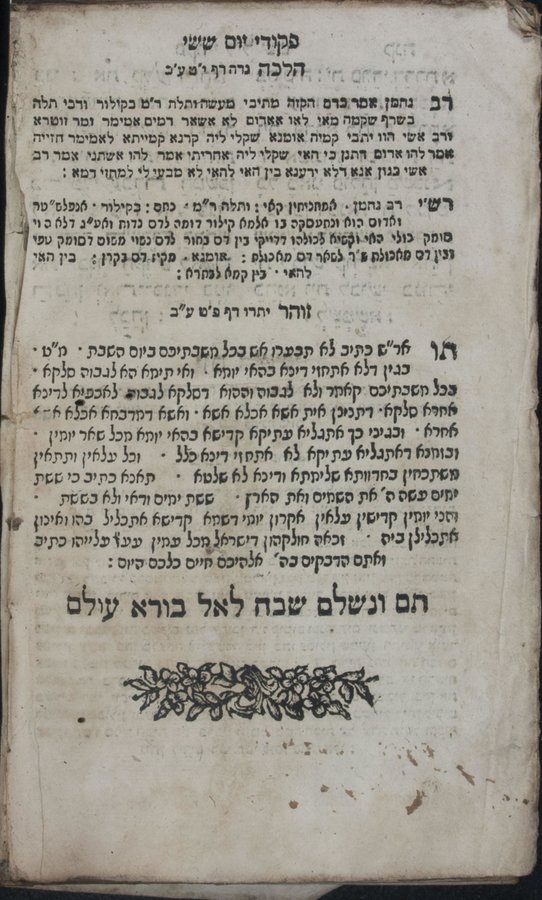 פקודי ליום ששי
הלכה נדה דף י״ט ע״ב
רב נחמן אמר בדם הקזה מתיבי מעשה ותלה ר״מ בקולור ורבי תלה
בשרף שקמה מאי לאו אאדום לא אשאר דמים אמימר ומר זוטרא
ורב אשי הוו יתבי קמיה אומנא שקלי ליה קרנא קמייתא לאמימר חזייה
אמר להו אדום דתנן כי האי שקלי ליה אחריתי אמר להו אשתני אמר רב
אשי כגון אנא דלא ידענא בין האי להאי לא מבעי לי למחזי דמא :
רש״י רב נחמן · אמתניתין קאי : ותלה ר״מ · כתם : בקילור · אנפלשטר
ואדום הוא ונתעסקה בו אלמא קילור דומה לדם נדות ואע״ג דלא הוי
סומק כולי האי
ובין דם מאכולת לשאר דם מאכולת : אומנא · מקיז דם בקרן : בין האי
להאי · בין קמא לבתרא :
זוהר יתרו דף פ״ט ע״ב
תו אר״ש כתיב לא תבערו אש בכל משבתיכם ביום השבת · מ״ט ·
בגין דלא אתחזי דינא בהאי יומא · ואי תימא הא לגבוה סלקא ·
בכל משבתיכם קאמר ולא לגבוה וההוא דסלקא לגבוה לאכפיא לדינא
אחרא סלקא · דתנינן אית אשא אכלא אשא · ואשא דמדבחא אכלא אשא
אחרא · ובגיני כך אתגליא עתיקא קדישא בהאי יומא מכל שאר יומין ·
ובזמנא דאתגליא עתיקא לא אתחזי דינא כלל · וכל עלאין ותתאין
משתכחין בחדוותא שלימתא ודינא לא שלטא · תאנא כתיב כי ששת
ימים עשה ה׳ את השמים ואת הארץ · ששת ימים ודאי ולא בששת ·
והני יומין קדישין עלאין אקרון יומי דשמא קדישא אתכליל בהו ואינון
אתכלילן ביה · זכאה חולקהון דישראל מכל עמין עעז עלייהו כתיב
ואתם הדבקים בה׳ אלהיכם חיים כלכם היום :
תם ונשלם שבח לאל בורא עולם